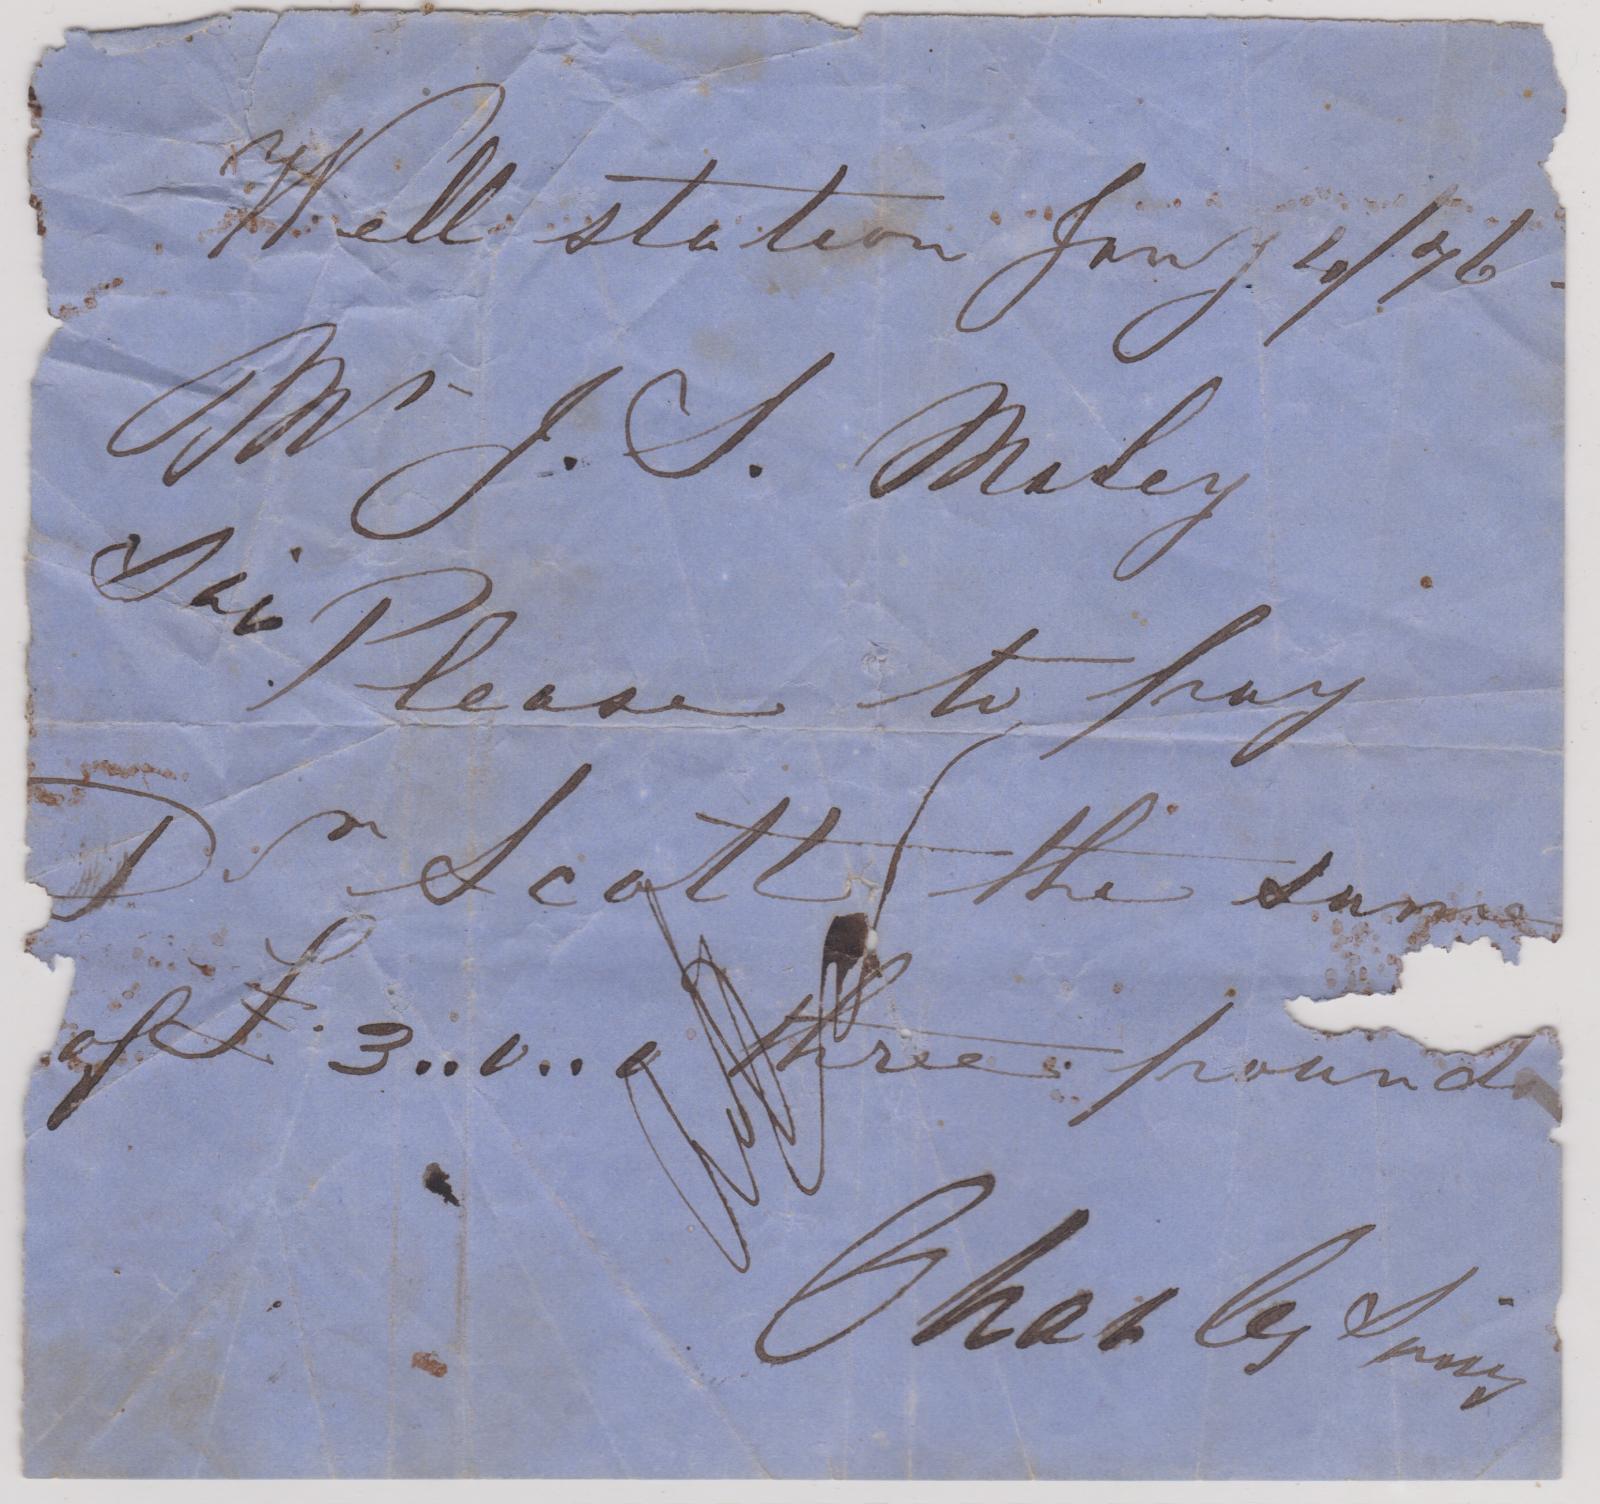 Well station Jany 4/76
Mr J. S. Maley
Sir
Please to pay
Dr Scott the sume
of £ 3..0..0 three pounds
Charley